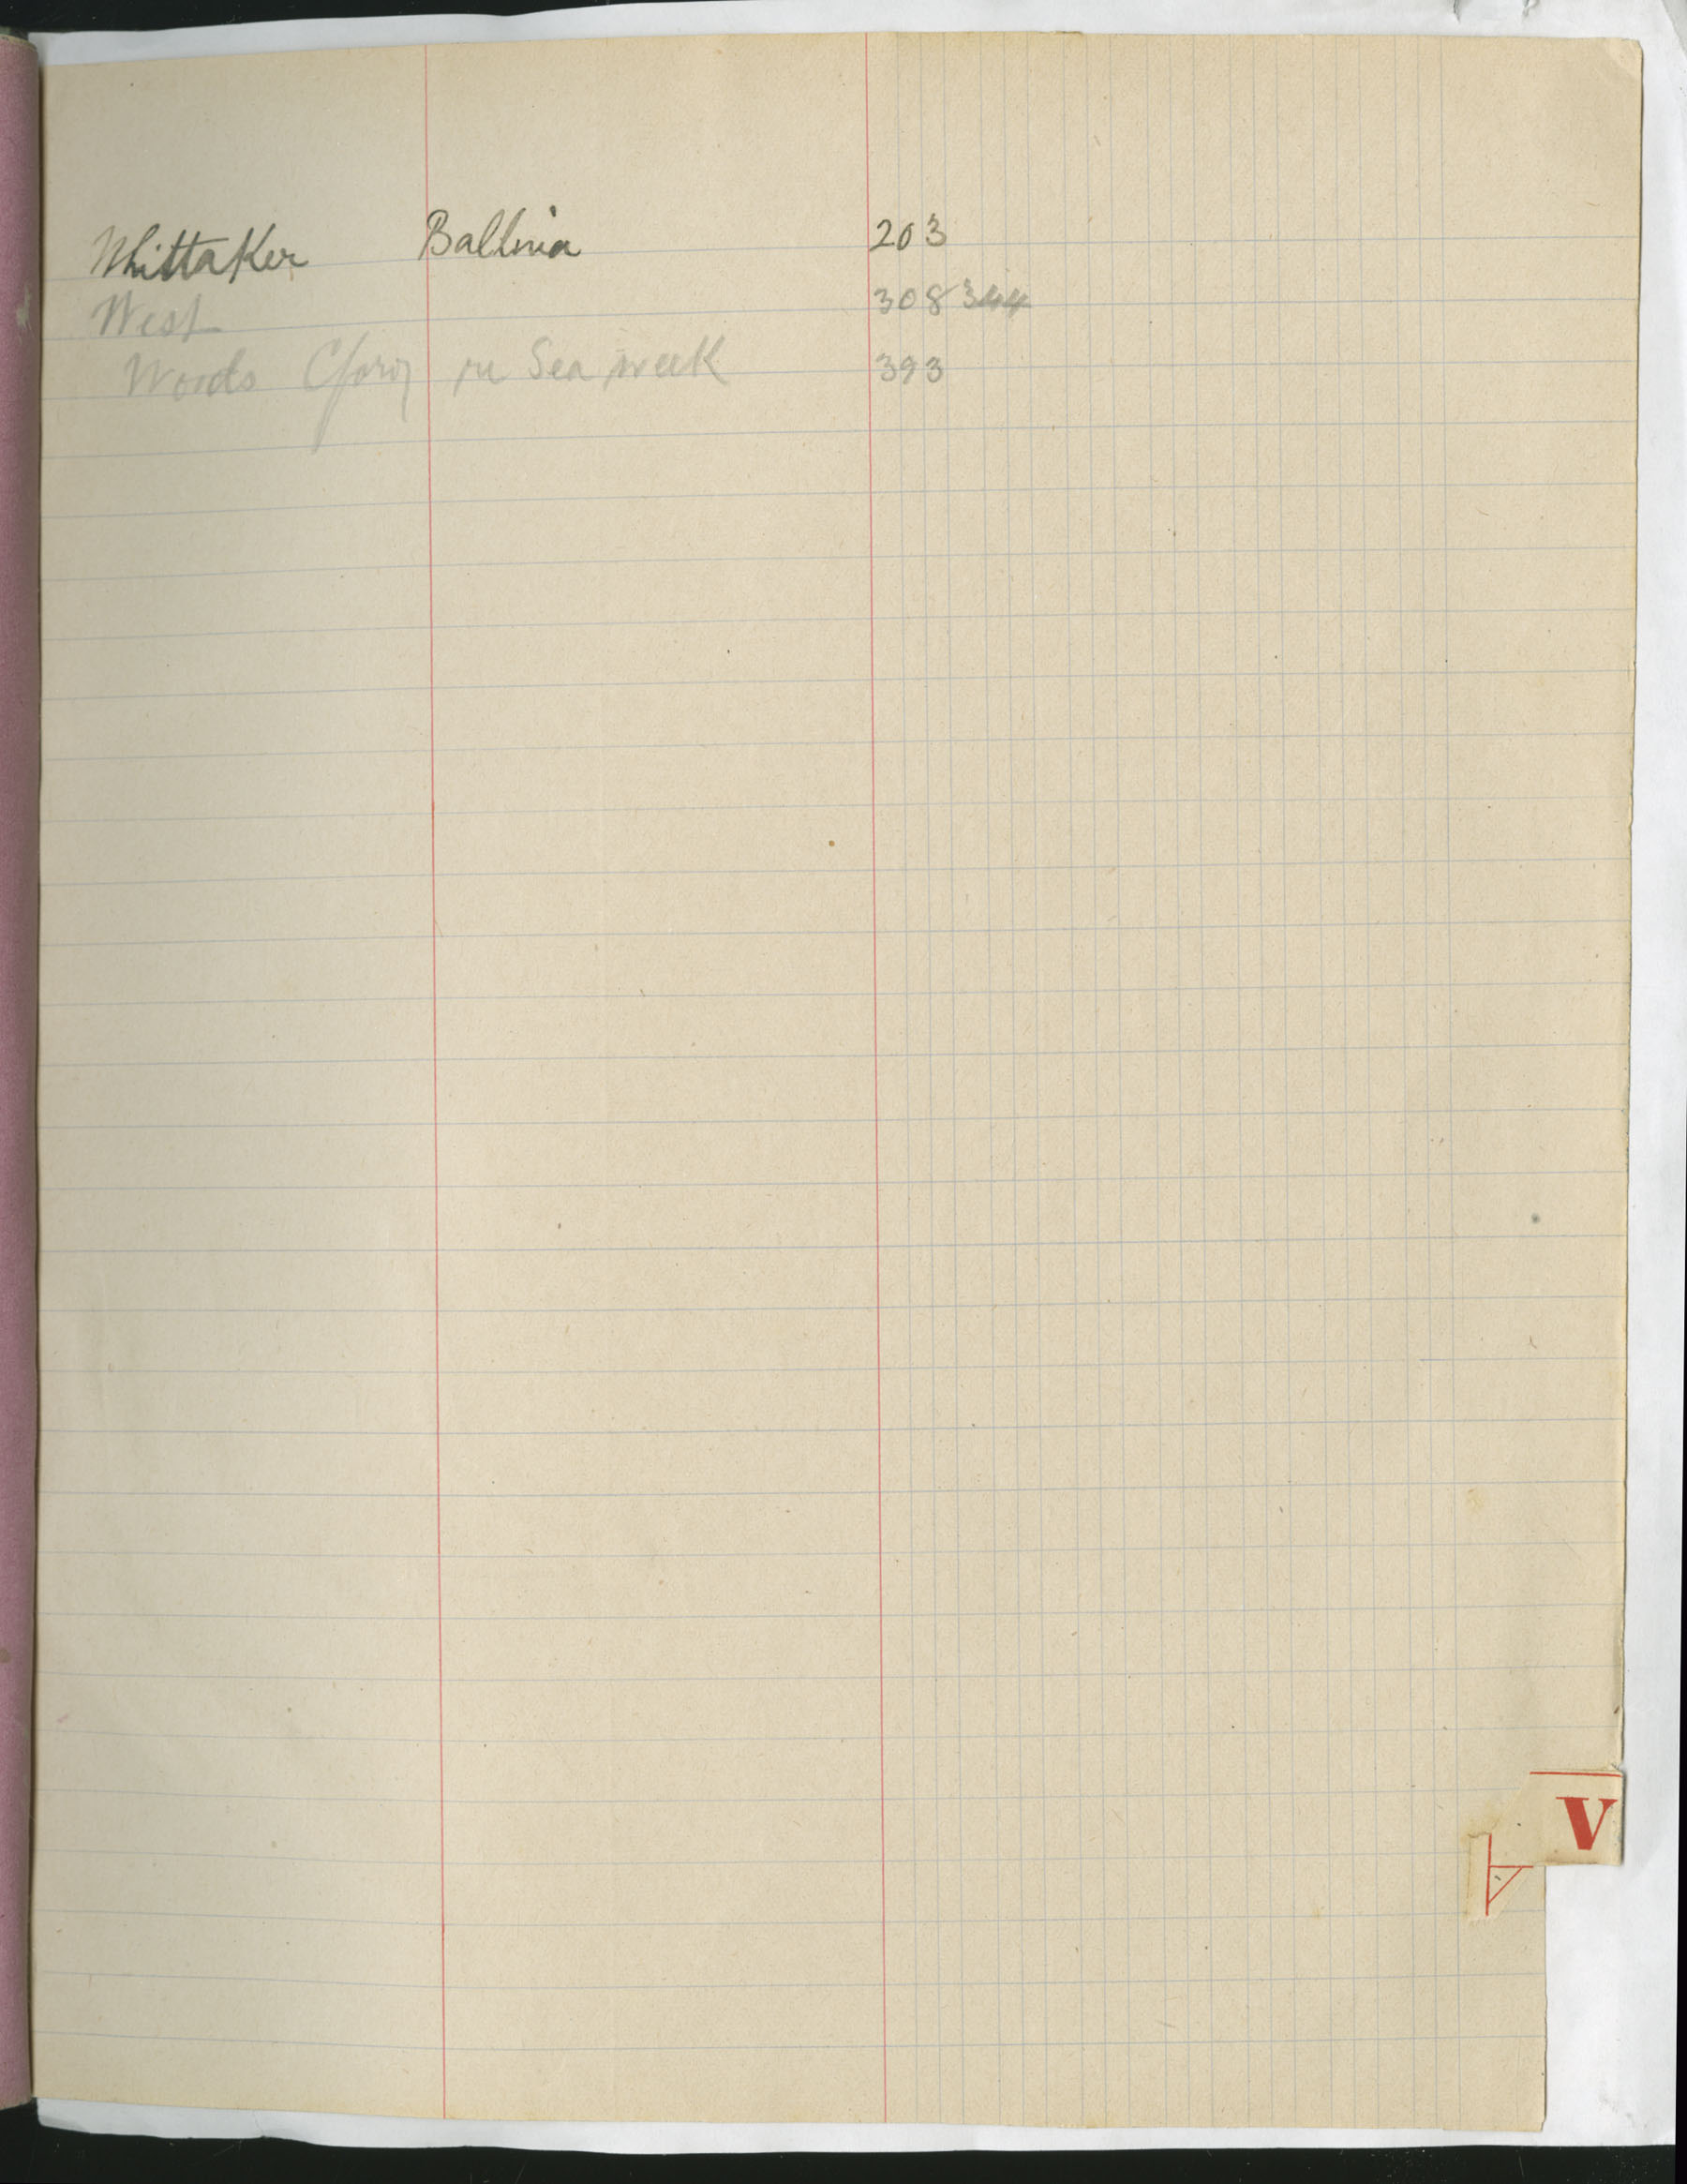 Whittaker Ballina 203
West 308 344
Woods re Sea week 393
V